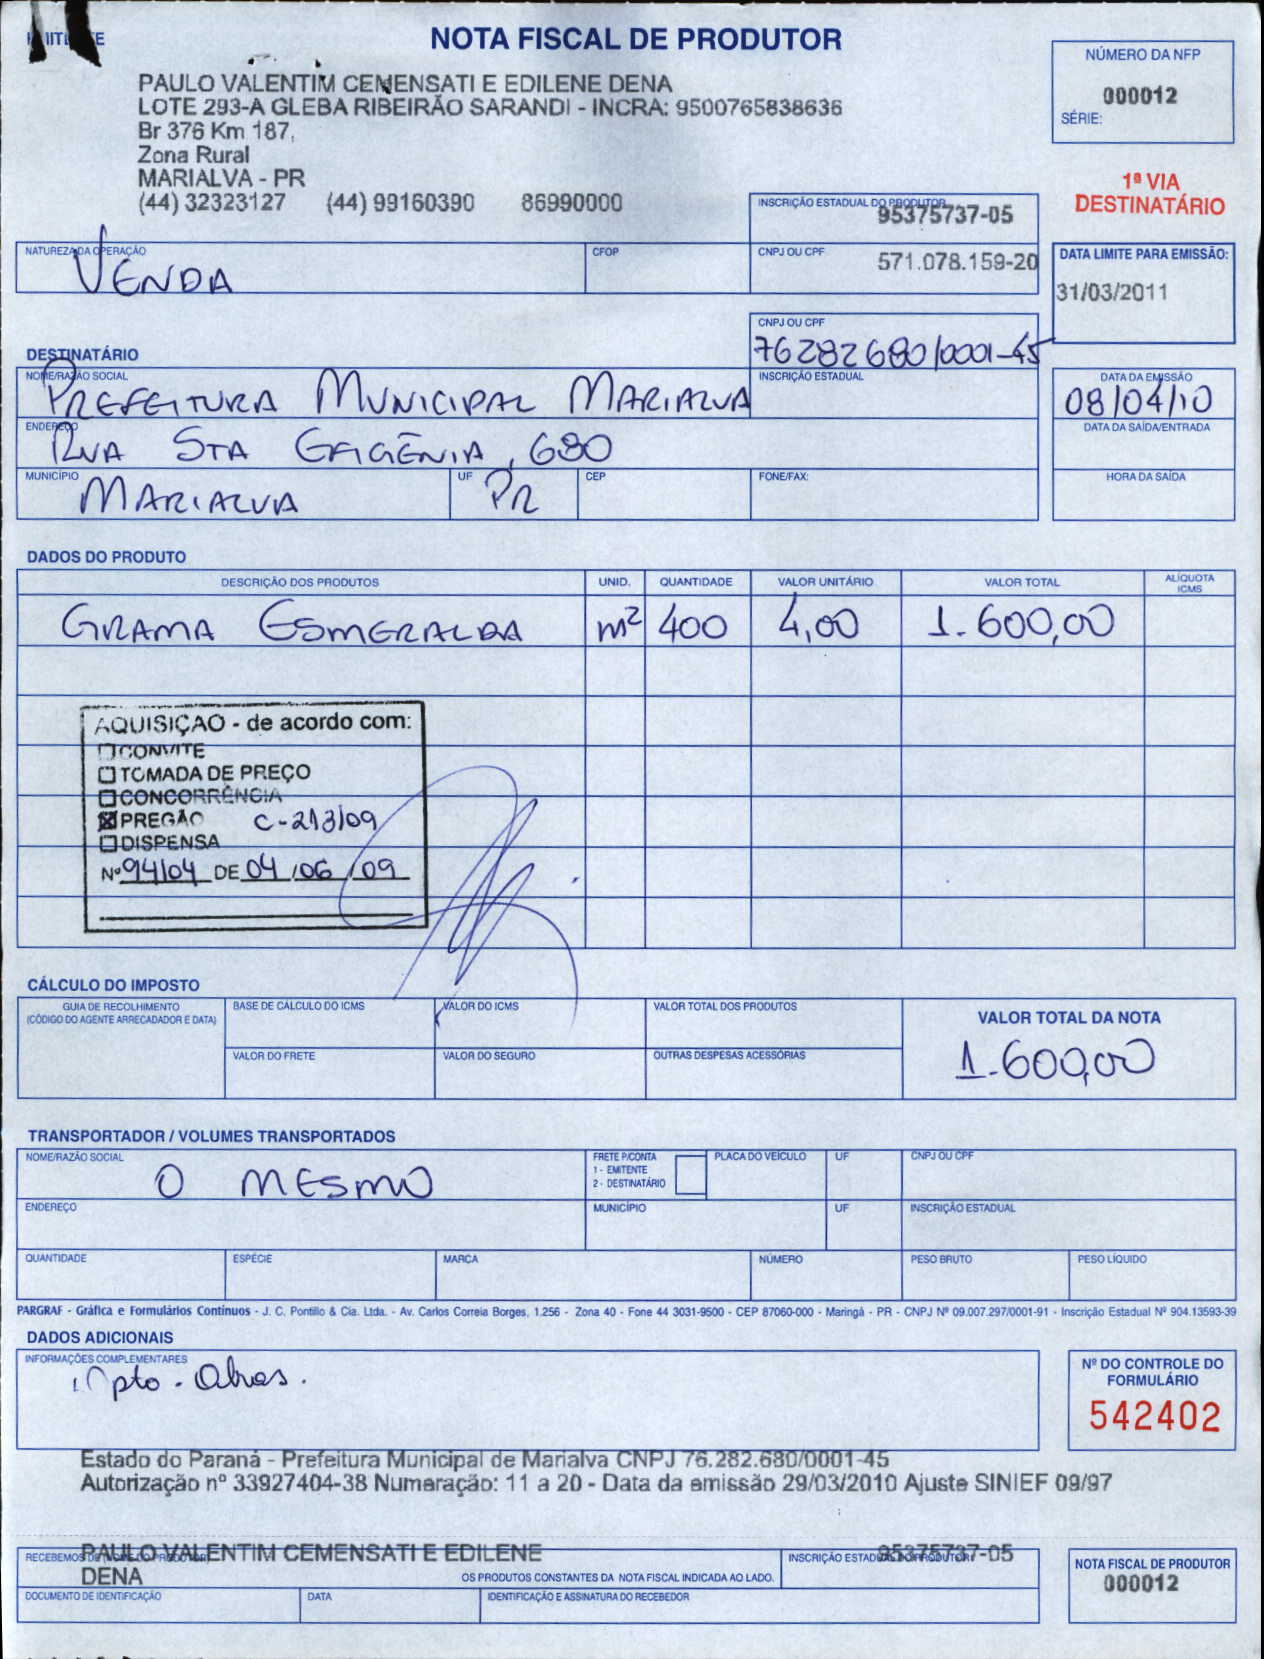 NOTA FISCAL DE PRODUTOR
PAULO VALENTIM CEMENSATI E EDILENE DENA
LOTE 293-A GLEBA RIBEIRÃO SARANDI - INCRA: 9500765838636
Br 376 Km 187,
Zona Rural
MARIALVA - PR
(44) 32323127 (44) 99160390 86990000
NÚMERO DA NFP
000012
SÉRIE:
1ª VIA
DESTINATÁRIO
INSCRIÇÃO ESTADUAL DO PRODUTOR
95375737-05
NATUREZA DA OPERAÇÃO
VENDA
CFOP
CNPJ OU CPF
571.078.159-20
DATA LIMITE PARA EMISSÃO:
31/03/2011
DESTINATÁRIO
CNPJ OU CPF
76282680/0001-45
NOME/RAZÃO SOCIAL
PREFEITURA MUNICIPAL MARIALVA
INSCRIÇÃO ESTADUAL
DATA DA EMISSÃO
08/04/10
ENDEREÇO
RUA STA EFIGÊNIA, 680
DATA DA SAÍDA/ENTRADA
MUNICÍPIO
MARIALVA
UF
PR
CEP
FONE/FAX:
HORA DA SAÍDA
DADOS DO PRODUTO
DESCRIÇÃO DOS PRODUTOS UNID. QUANTIDADE VALOR UNITÁRIO VALOR TOTAL ALÍQUOTA ICMS
GRAMA ESMERALDA m² 400 4,00 1.600,00
AQUISIÇAO - de acordo com:
CONVITE
TOMADA DE PREÇO
CONCORRÊNCIA
PREGÃO C-213/09
DISPENSA
Nº 94/04 DE 04/06/09
CÁLCULO DO IMPOSTO
GUIA DE RECOLHIMENTO
(CÓDIGO DO AGENTE ARRECADADOR E DATA)
BASE DE CÁLCULO DO ICMS
VALOR DO ICMS
VALOR TOTAL DOS PRODUTOS
VALOR TOTAL DA NOTA
1.600,00
VALOR DO FRETE
VALOR DO SEGURO
OUTRAS DESPESAS ACESSÓRIAS
TRANSPORTADOR / VOLUMES TRANSPORTADOS
NOME/RAZÃO SOCIAL
O MESMO
FRETE P/CONTA
1 - EMITENTE
2 - DESTINATÁRIO
PLACA DO VEÍCULO
UF
CNPJ OU CPF
ENDEREÇO
MUNICÍPIO
UF
INSCRIÇÃO ESTADUAL
QUANTIDADE
ESPÉCIE
MARCA
NÚMERO
PESO BRUTO
PESO LÍQUIDO
PARGRAF - Gráfica e Formulários Contínuos - J. C. Pontillo & Cia. Ltda. - Av. Carlos Correia Borges, 1.256 - Zona 40 - Fone 44 3031-9500 - CEP 87060-000 - Maringá - PR - CNPJ Nº 09.007.297/0001-91 - Inscrição Estadual Nº 904.13593-39
DADOS ADICIONAIS
INFORMAÇÕES COMPLEMENTARES
Dpto. Obras.
Nº DO CONTROLE DO
FORMULÁRIO
542402
Estado do Paraná - Prefeitura Municipal de Marialva CNPJ 76.282.680/0001-45
Autorização nº 33927404-38 Numeração: 11 a 20 - Data da emissão 29/03/2010 Ajuste SINIEF 09/97
RECEBEMOS DE (NOME DO PRODUTOR)
PAULO VALENTIM CEMENSATI E EDILENE
DENA
OS PRODUTOS CONSTANTES DA NOTA FISCAL INDICADA AO LADO.
INSCRIÇÃO ESTADUAL DO PRODUTOR
95375737-05
NOTA FISCAL DE PRODUTOR
000012
DOCUMENTO DE IDENTIFICAÇÃO
DATA
IDENTIFICAÇÃO E ASSINATURA DO RECEBEDOR